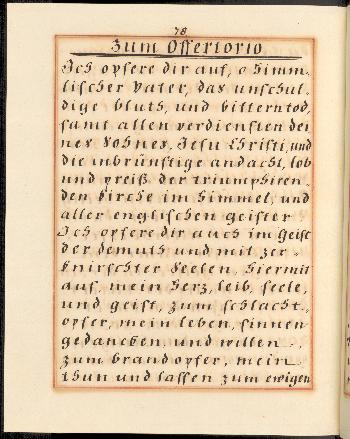 78
Zum Offertorio
Ich opfere dir auf, o himm-
lischer Vater, das unschul-
dige bluts, und bittern tod,
samt allen verdiensten dei
nes Sohnes, Jesu Christi, und
die inbrünstige andacht, lob
und preiß der triumphiren-
den kirche im himmel, und
aller englischen geister
Ich opfere dir auch im Geist
der demuth und mit zer-
knirschter Seelen, hiermit
auf, mein herz, leib, seele,
und geist, zum schlacht-
opfer, mein leben, sinnen
gedancken, und willen
zum brandopfer, mein
thun und lassen zum ewigen